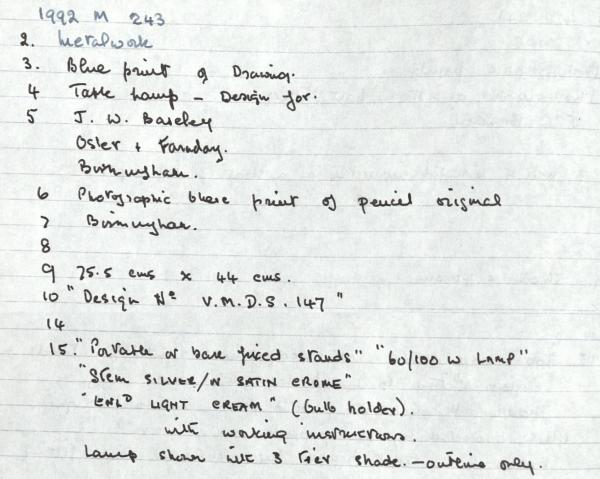 1992 M 243
2. Metalwork
3. Blue print of Drawing.
4 Table Lamp - Design for.
5 J. W. Baseley
Osler + Faraday.
Birmingham.
6 Photographic blue print of pencil original
7 Birmingham.
8
9 75.5 cms x 44 cms.
10 "Design No V.M.D.S. 147"
14
15. "Portable or base fixed stands" "60/100 W LAMP"
"Stem SILVER/N SATIN CROME"
"ENLD LIGHT CREAM" (bulb holder).
with working instructions.
Lamp shown with 3 tier shade. - outline only.